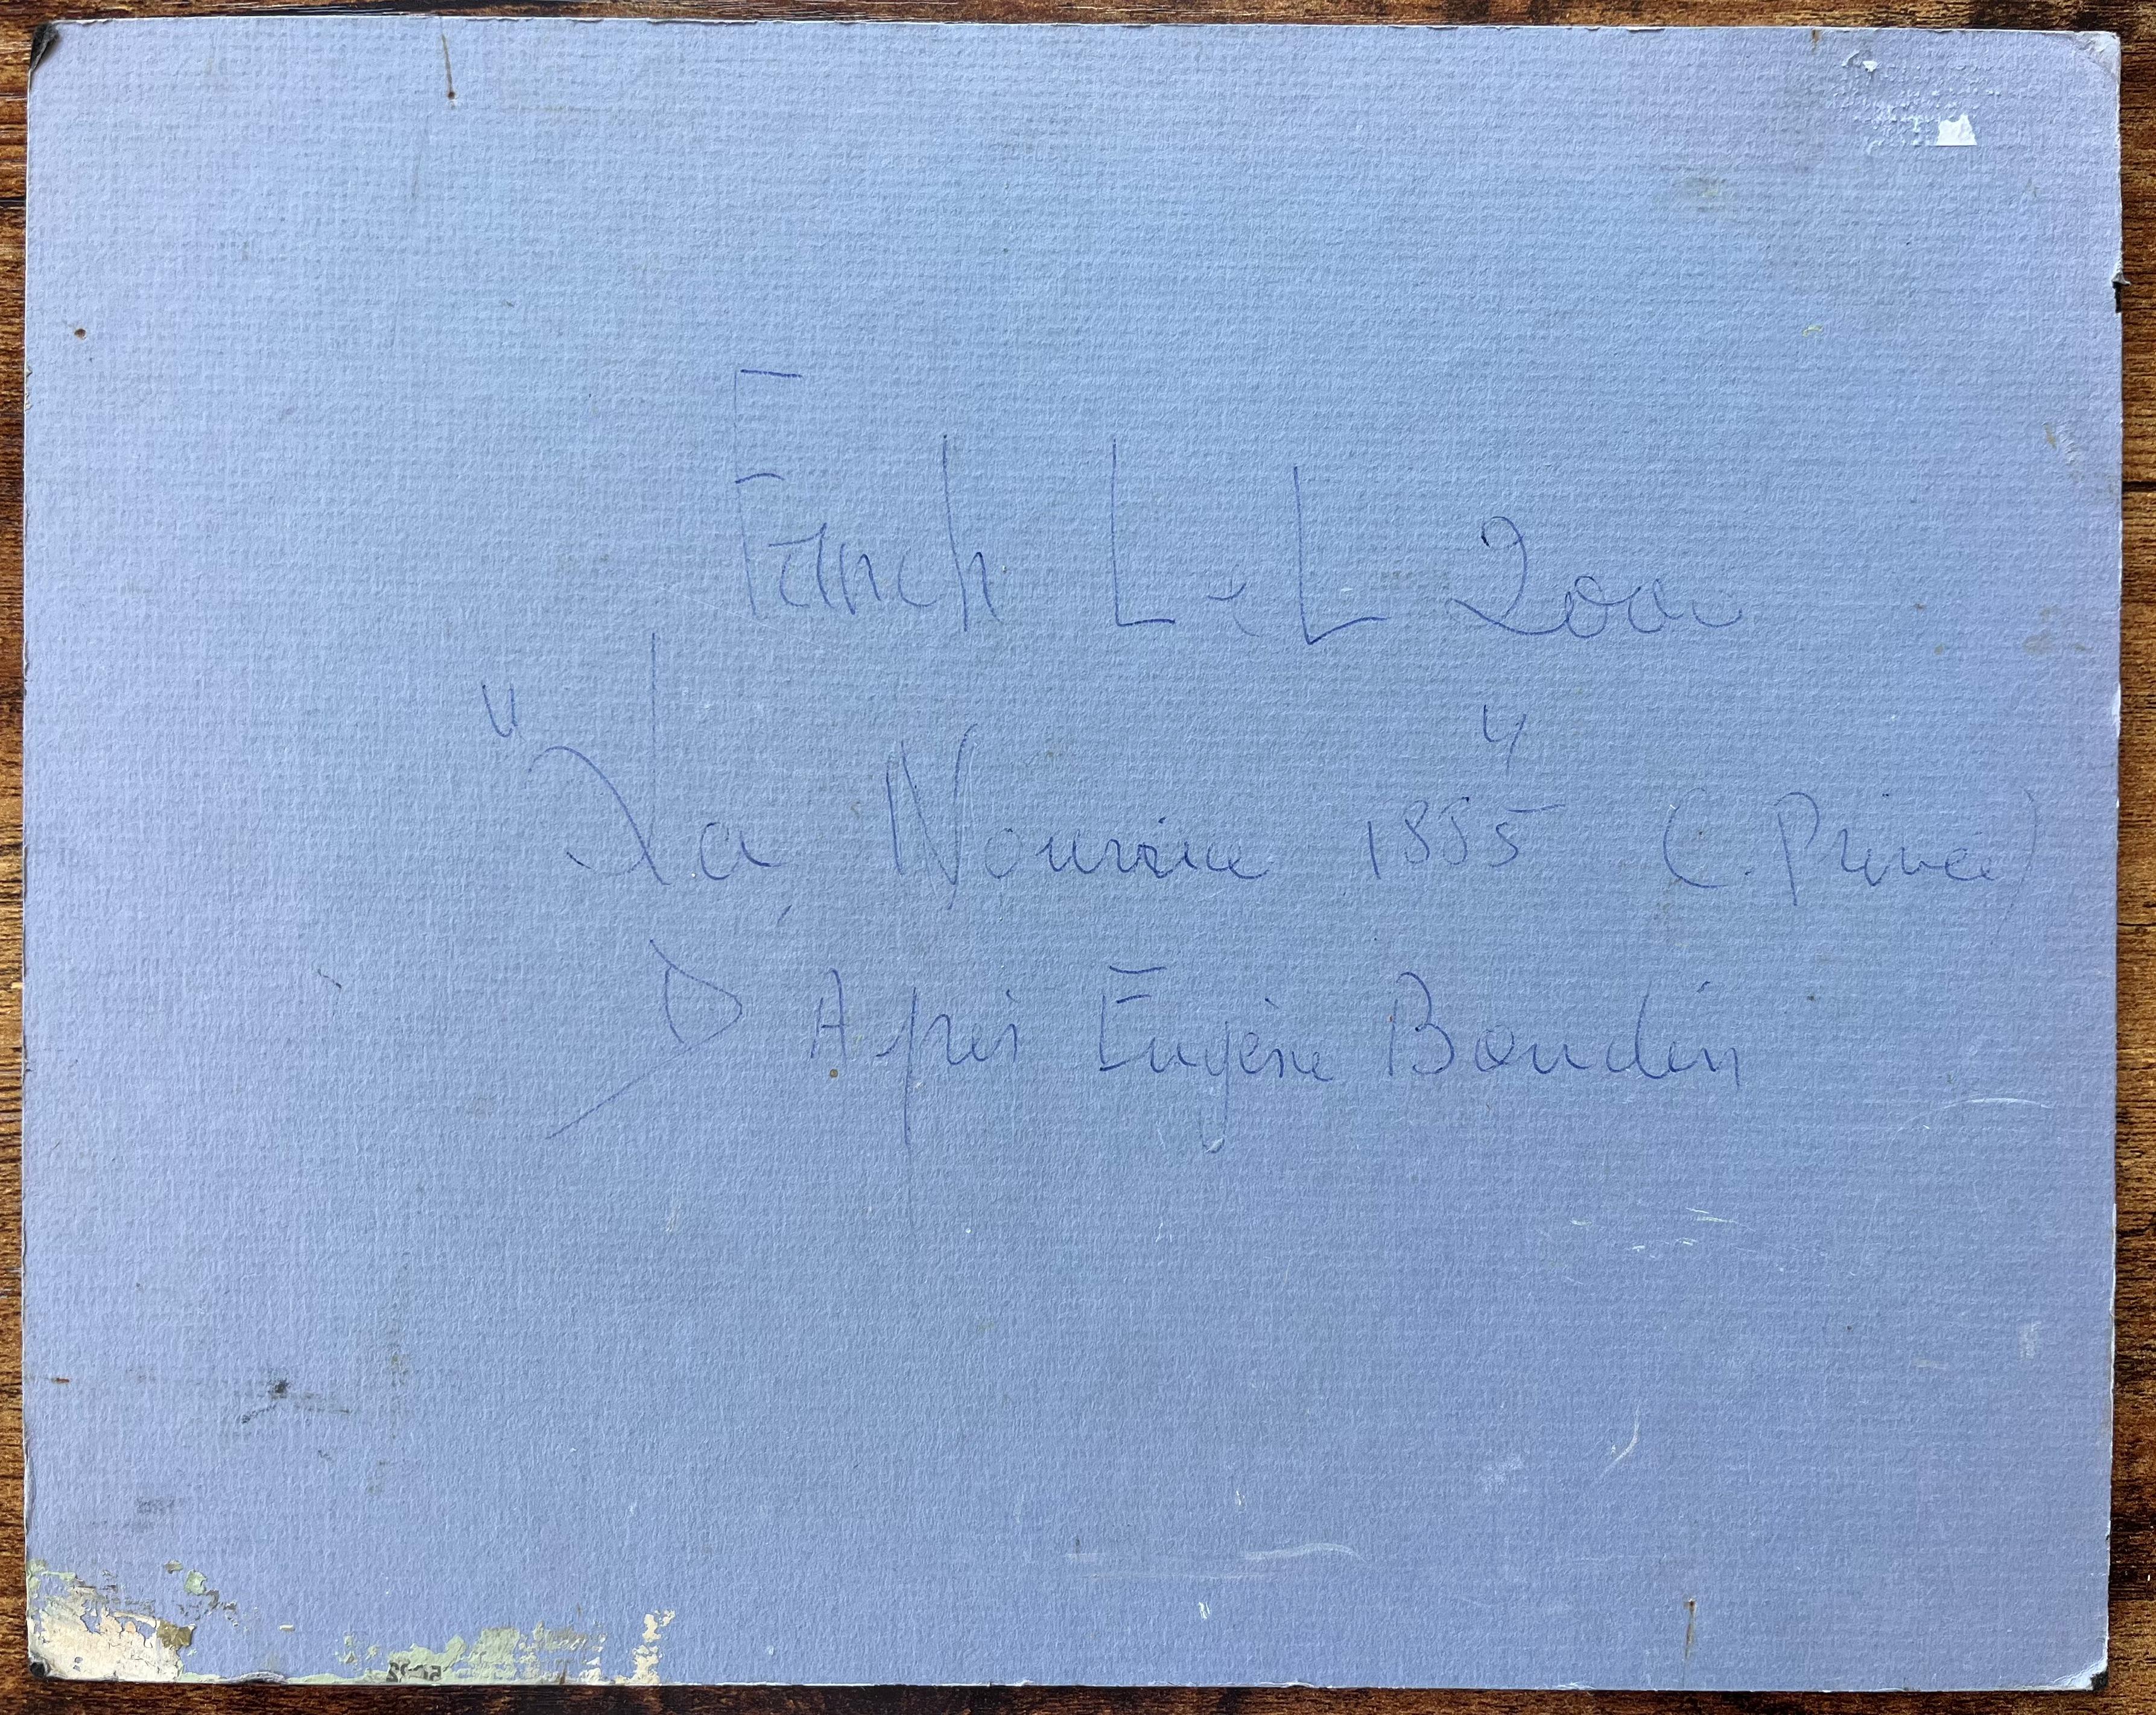 Fanch L L 2001
"La Nourrice" 1885 (C. Privée)
D'Après Eugène Boudin